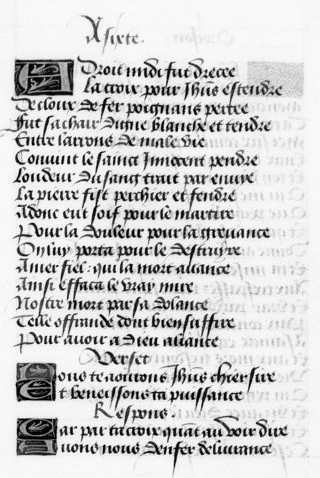 A sixte.
En droit midi fut drecee
La croix pour Jhus estendre
De cloux de fer poignans percee
Fut sa chair digne blanche et tendre
Entre larrons de male vie
Convint le sainct Innocent pendre
Loudeur du sang trait par envye
La pierre fist perchier et fendre
Adonc eut soif pour le martire
Pour la douleur pour la grevance
On luy porta pour le destruyre
Amer fiel: qui la mort avance
Ainsi effaca le vray mire
Nostre mort par sa dolance
Telle offrande dont bien suffire
Pour avoir a Dieu aliance
Verset
Nous te aourons Jhus chier sire
Et beneissons ta puissance
Respons.
Car par ta croix quant au voir dire
Avons nous denfer delivrance